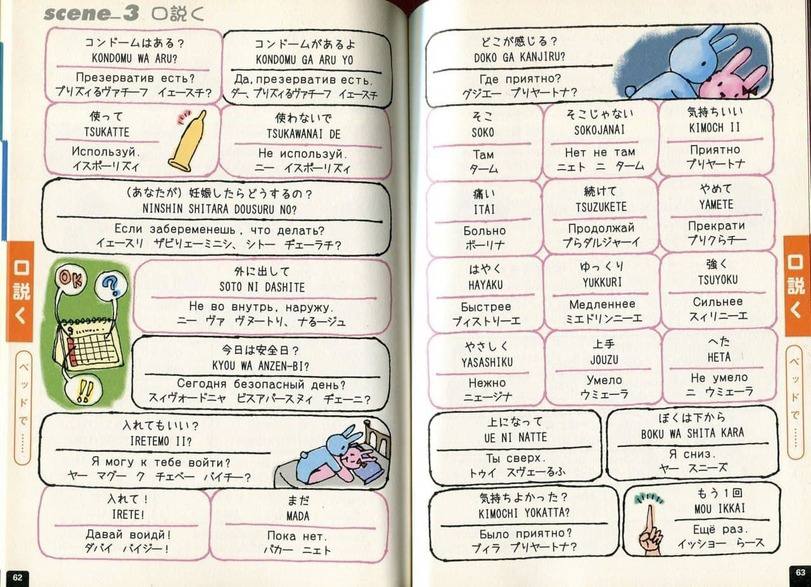 scene_3 口説く
コンドームはある？
KONDOMU WA ARU?
Презерватив есть?
プりズィるヴァチーフ　イェースチ？
コンドームがあるよ
KONDOMU GA ARU YO
Да, презерватив есть.
ダー、プりズィるヴァチーフ　イェースチ
使って
TSUKATTE
Используй.
イスポーリズィ
使わないで
TSUKAWANAI DE
Не используй.
ニー　イスポーリズィ
（あなたが）妊娠したらどうするの？
NINSHIN SHITARA DOUSURU NO?
Если забеременешь, что делать?
イェースリ　ザビリェーミニシ、シトー　ヂェーラチ？
外に出して
SOTO NI DASHITE
Не во внутрь, наружу.
ニー　ヴァ　ヴヌートり、ナるージュ
OK
?
!!
今日は安全日？
KYOU WA ANZEN-BI?
Сегодня безопасный день?
スィヴォードニャ　ビスアパースヌィ　ヂェーニ？
入れてもいい？
IRETEMO II?
Я могу к тебе войти?
ヤー　マグー　ク　チェベー　バイチー？
入れて！
IRETE!
Давай воидй!
ダバイ　バイジー！
まだ
MADA
Пока нет.
パカー　ニェト
口説く
ベッドで……
62
どこが感じる？
DOKO GA KANJIRU?
Где приятно?
グジエー　プりヤートナ？
そこ
SOKO
Там
ターム
そこじゃない
SOKOJANAI
Нет не там
ニェト　ニ　ターム
気持ちいい
KIMOCH II
Приятно
プリヤートナ
痛い
ITAI
Больно
ボーリナ
続けて
TSUZUKETE
Продолжай
プらダルジャーイ
やめて
YAMETE
Прекрати
プリクらチー
はやく
HAYAKU
Быстрее
ブィストリーエ
ゆっくり
YUKKURI
Медленнее
ミエドリンニーエ
強く
TSUYOKU
Сильнее
スィリニーエ
やさしく
YASASHIKU
Нежно
ニェージナ
上手
JOUZU
Умело
ウミェーラ
へた
HETA
Не умело
ニ　ウミェーラ
上になって
UE NI NATTE
Ты сверх.
トゥイ　スヴェーるふ
ぼくは下から
BOKU WA SHITA KARA
Я сниз.
ヤー　スニーズ
気持ちよかった？
KIMOCHI YOKATTA?
Было приятно?
ブィラ　プりヤートナ？
もう1回
MOU IKKAI
Ещё раз.
イッショー　らース
口説く
ベッドで……
63